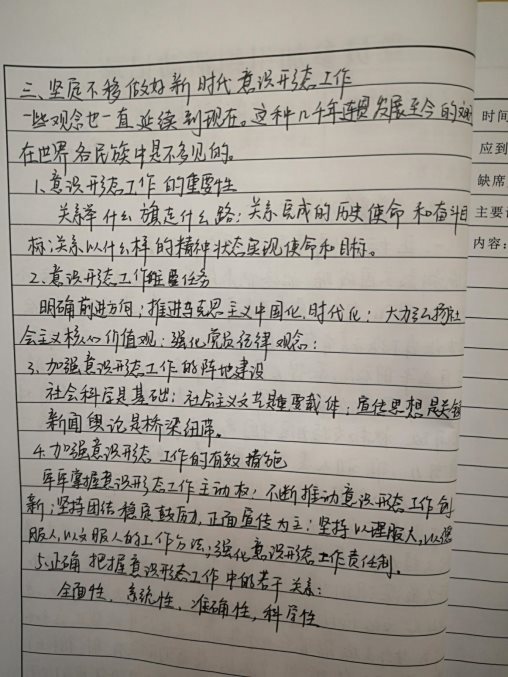 三、坚定不移做好新时代意识形态工作
一些观念也一直延续到现在。这种几千年连贯发展至今的文
在世界各民族中是不多见的。
1、意识形态工作的重要性
关系举什么旗走什么路；关系完成的历史使命和奋斗目
标；关系以什么样的精神状态实现使命和目标。
2.意识形态工作主要任务
明确前进方向；推进马克思主义中国化、时代化；大力弘扬社
会主义核心价值观；强化党员纪律观念；
3、加强意识形态工作的阵地建设
社会科学是基础；社会主义文艺是重要载体；宣传思想是关键
新闻舆论是桥梁纽带。
4.加强意识形态工作的有效措施
牢牢掌握意识形态工作主动权；不断推动意识形态工作创
新；坚持团结稳定鼓励，正面宣传为主；坚持以理服人，以德
服人，以文服人的工作方法；强化意识形态工作责任制。
5、正确把握意识形态工作中的若干关系：
全面性、系统性、准确性，科学性
时间
应到
缺席
主要
内容：